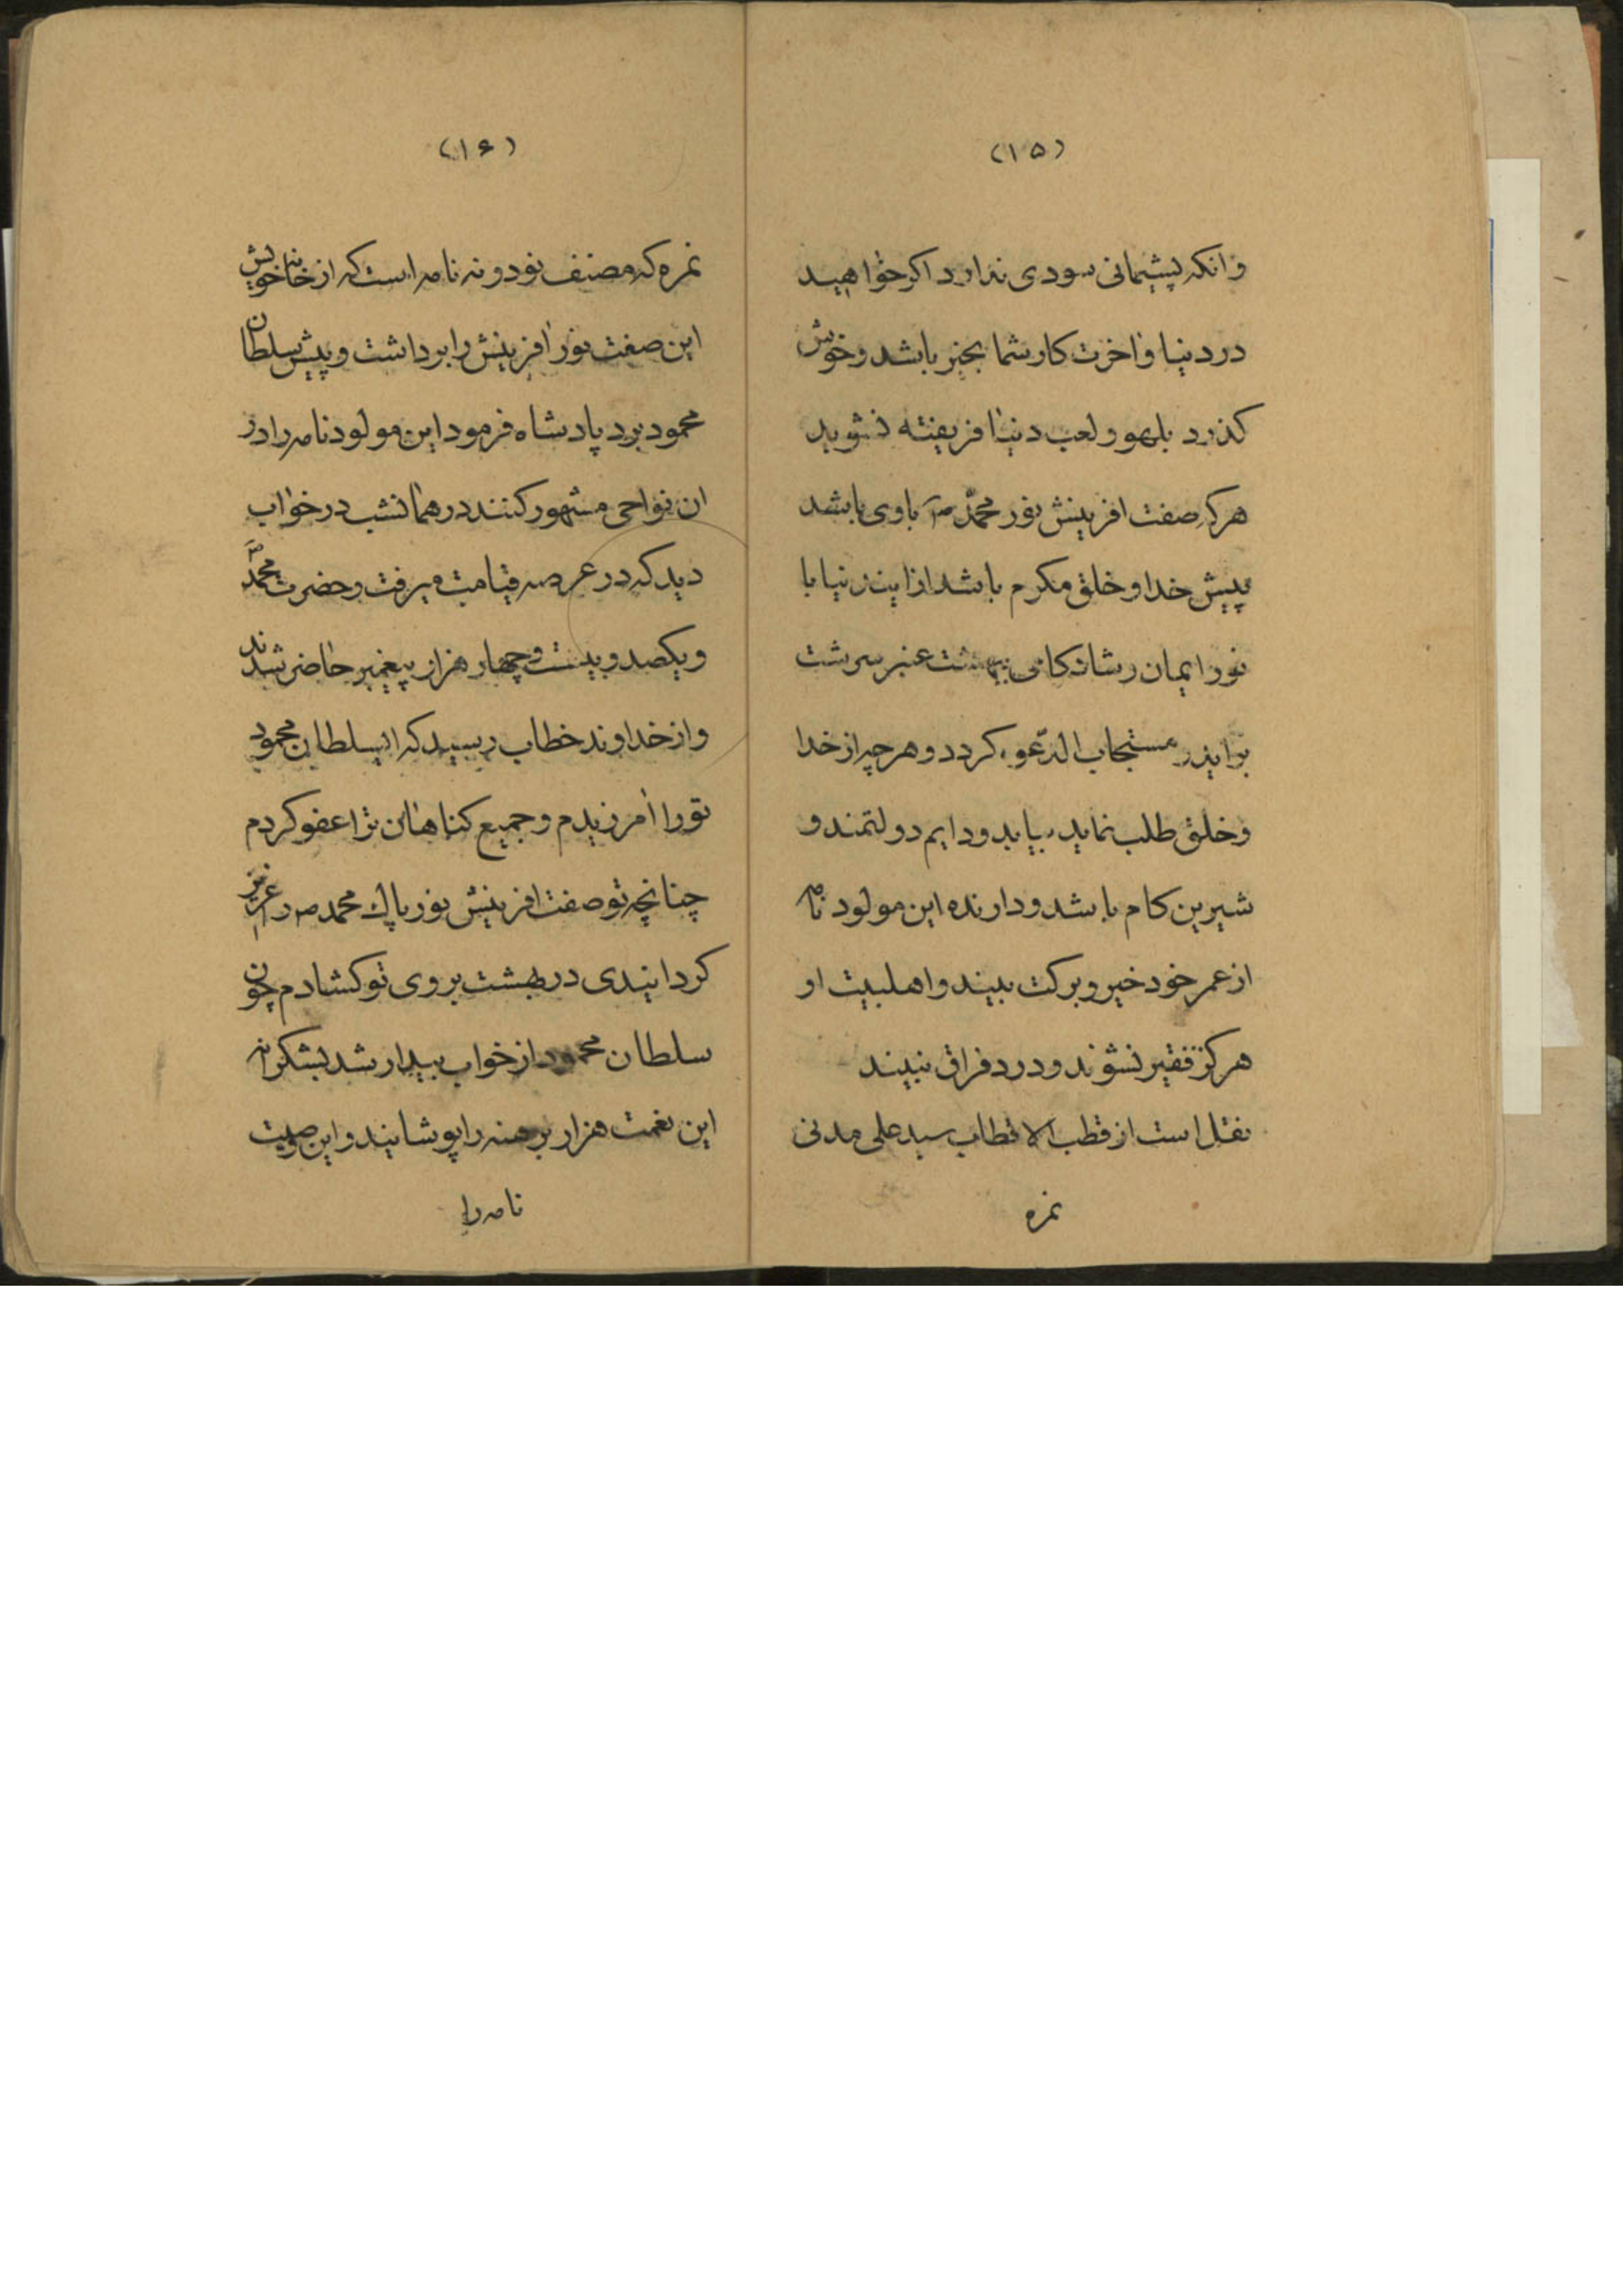 (۱۵)
وانکه پشیمانی سودی ندارد اکر خواهید
در دنیا واخرت کار شما بخیر باشد و خوش
کذرد بلهو و لعب دنیا فریفته نشوید
هرکه صفت افرینش نور محمد ص باوی باشد
پیش خدا و خلق مکرم باشد از این دنیا با
نور ایمان بهشت عنبر سرشت
براید مستجاب الدعوه کردد و هرچه از خدا
و خلق طلب نماید بیابد و دایم دولتمند و
شیرین کام باشد و دارنده این مولود نامه
از عمر خود خیر و برکت بیند و اهلبیت او
هرکز فقیر نشوند و درد فراق نبینند
نقل است از قطب الاقطاب سید علی مدنی
نمره
(۱۶)
نمره که مصنف نود و نه نامه است که از خانه خویش
این صفت نور افرینش را برداشت و پیش سلطان
محمود برد پادشاه فرمود این مولود نامه را در
ان نواحی مشهور کنند در همانشب در خواب
دید که در عرصه قیامت میرفت و حضرت محمد ص
و یکصد و بیست و چهار هزار پیغمبر حاضر شدند
و از خداوند خطاب رسید که ایسلطان محمود
تورا امرزیدم و جمیع کناهان ترا عفو کردم
چنانچه تو صفت افرینش نور پاک محمد ص را عزیز
کردانیدی در بهشت بروی تو کشادم چون
سلطان محمود از خواب بیدار شد بشکرانه
این نعمت هزار برهنه را پوشانیند و این
نامه را